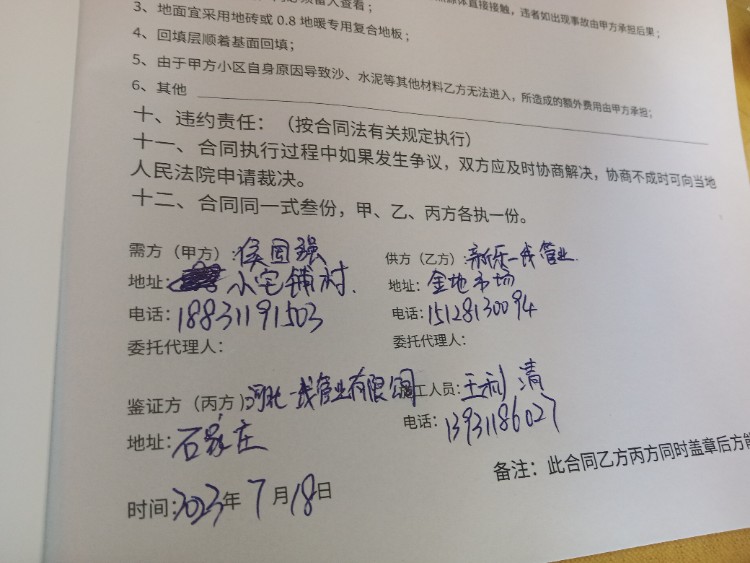 须留人查看；
源体直接接触，违者如出现事故由甲方承担后果；
3、地面宜采用地砖或 0.8 地暖专用复合地板；
4、回填层顺着基面回填；
5、由于甲方小区自身原因导致沙、水泥等其他材料乙方无法进入，所造成的额外费用由甲方承担；
6、其他
十、违约责任：（按合同法有关规定执行）
十一、合同执行过程中如果发生争议，双方应及时协商解决，协商不成时可向当地
人民法院申请裁决。
十二、合同同一式叁份，甲、乙、丙方各执一份。
需方（甲方）：侯国强
供方（乙方）：新乐一线管业
地址：小宅铺村
地址：金地市场
电话：18831191503
电话：15128130094
委托代理人：
委托代理人：
鉴证方（丙方）：河北一线管业有限公司
工人员：王利清
地址：石家庄
电话：13931186027
备注：此合同乙方丙方同时盖章后方能
时间：2023年7月18日